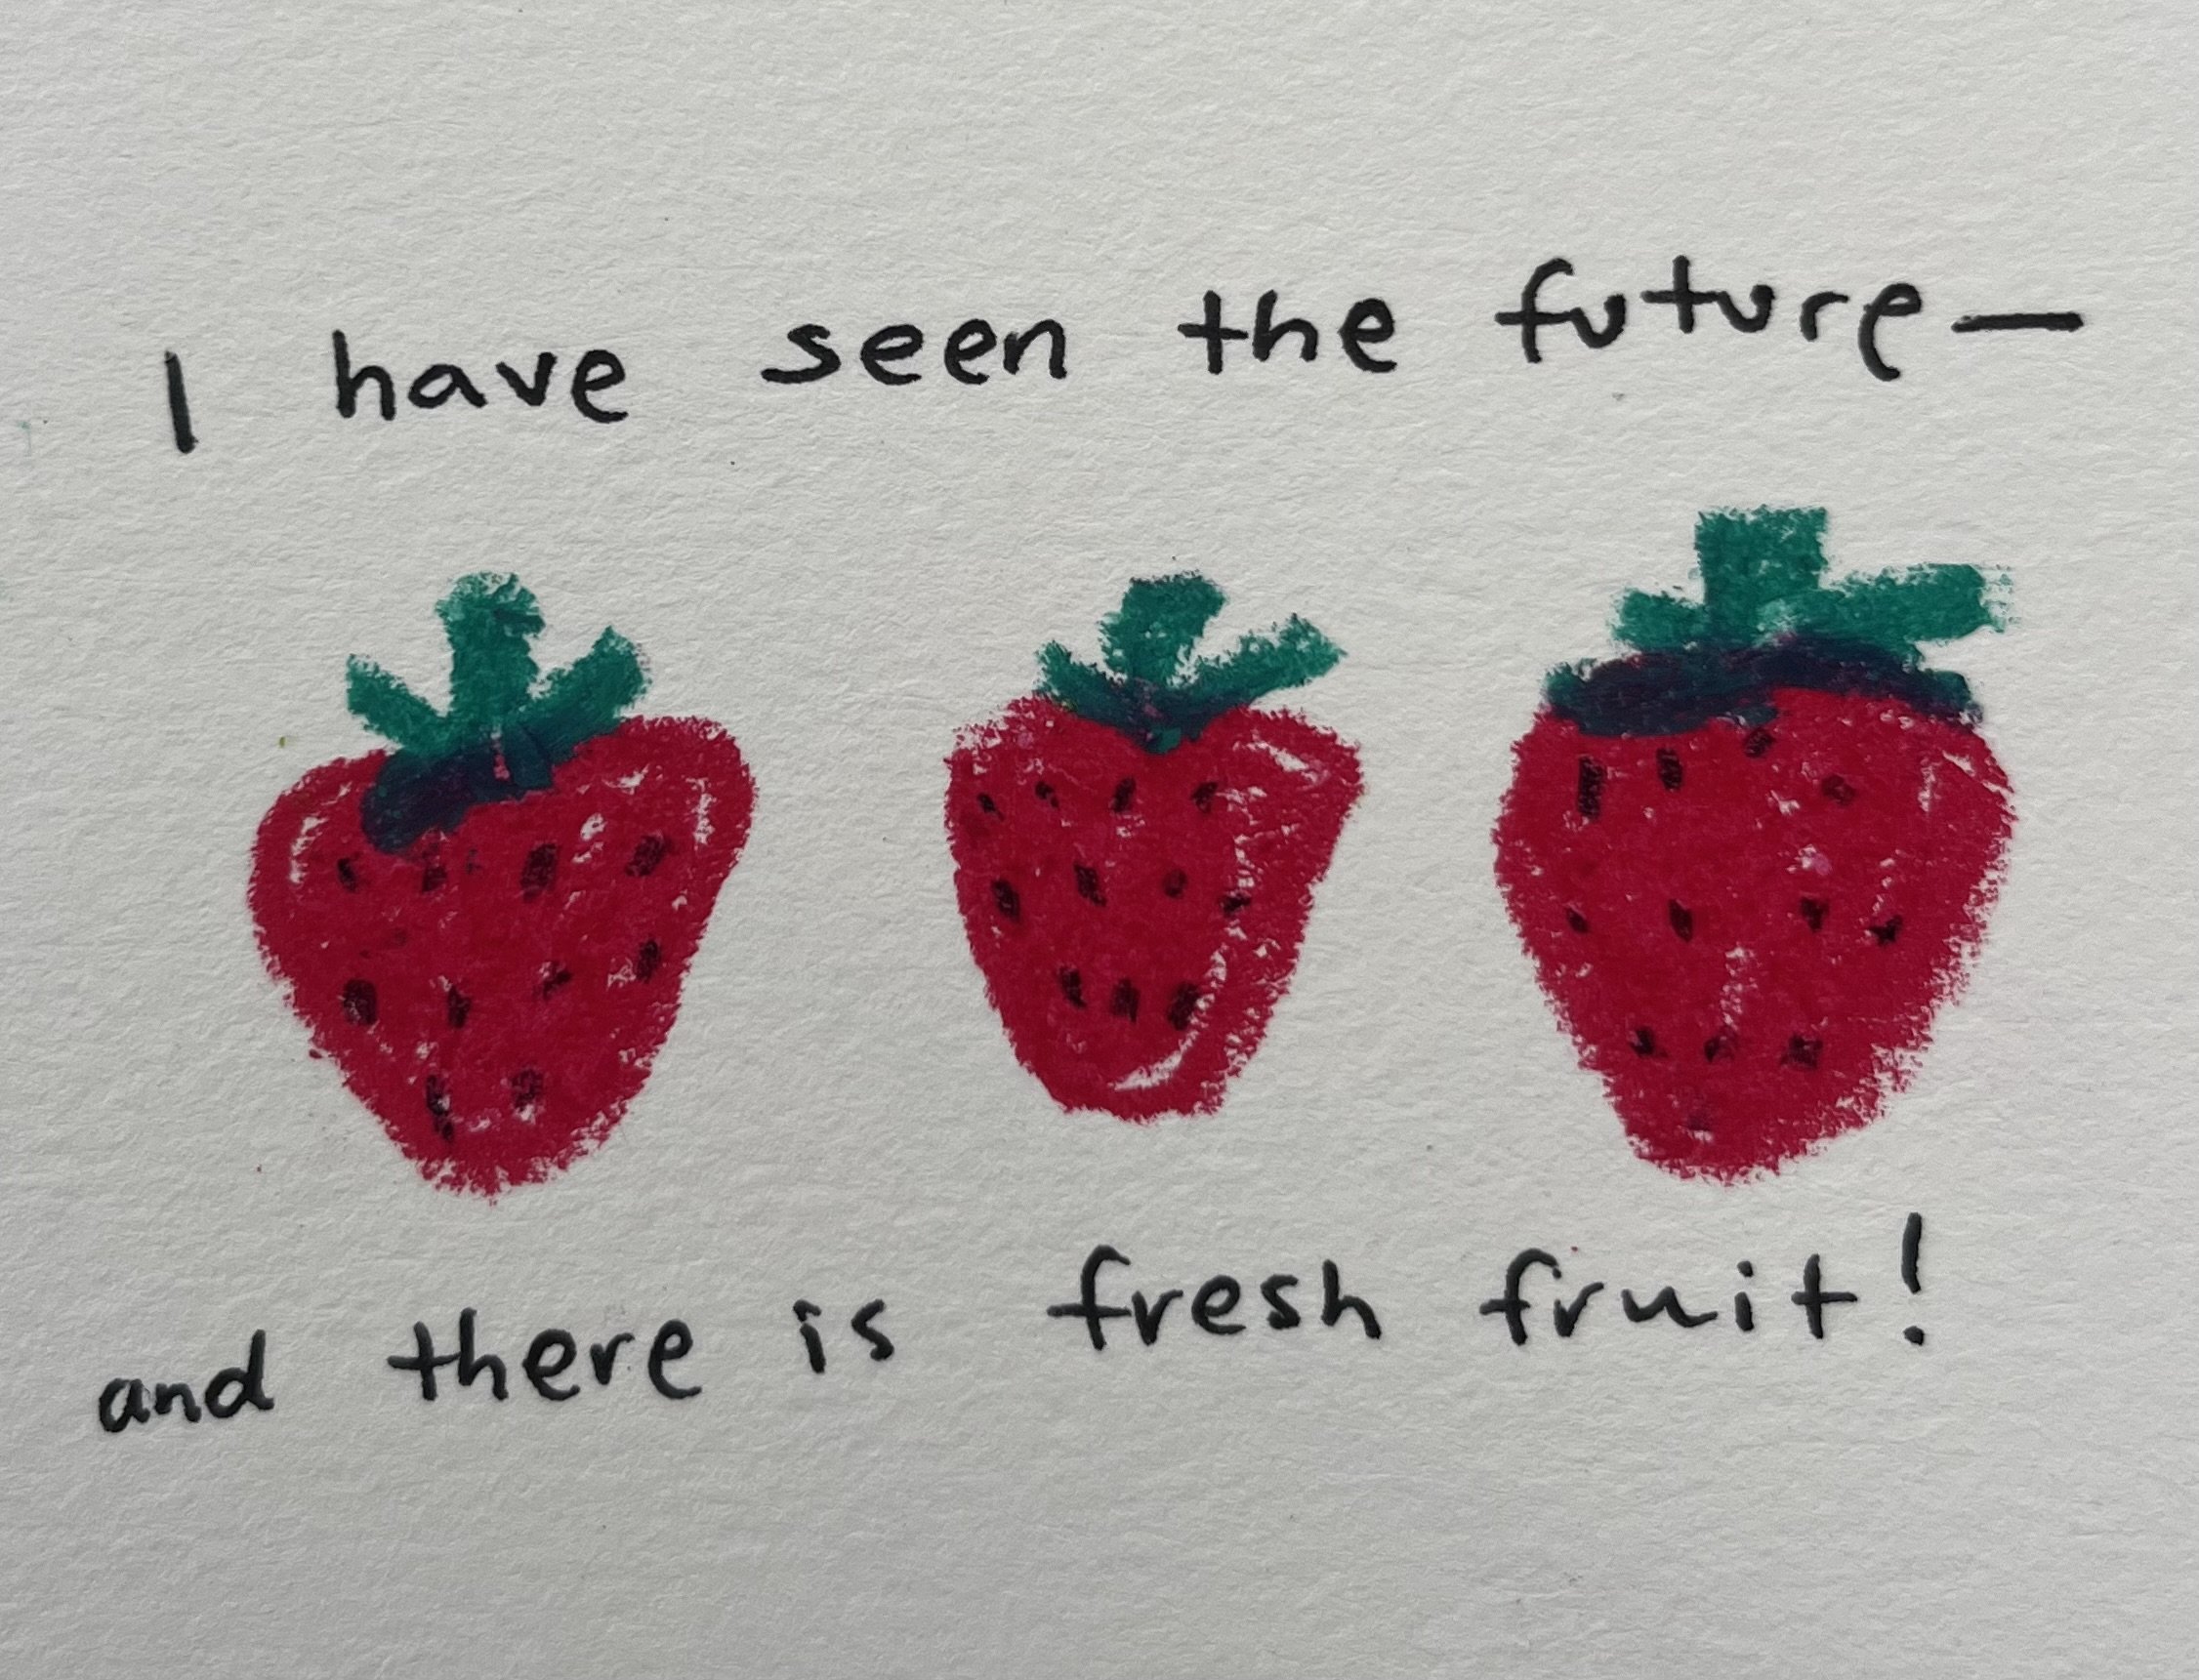 I have seen the future—
and there is fresh fruit!